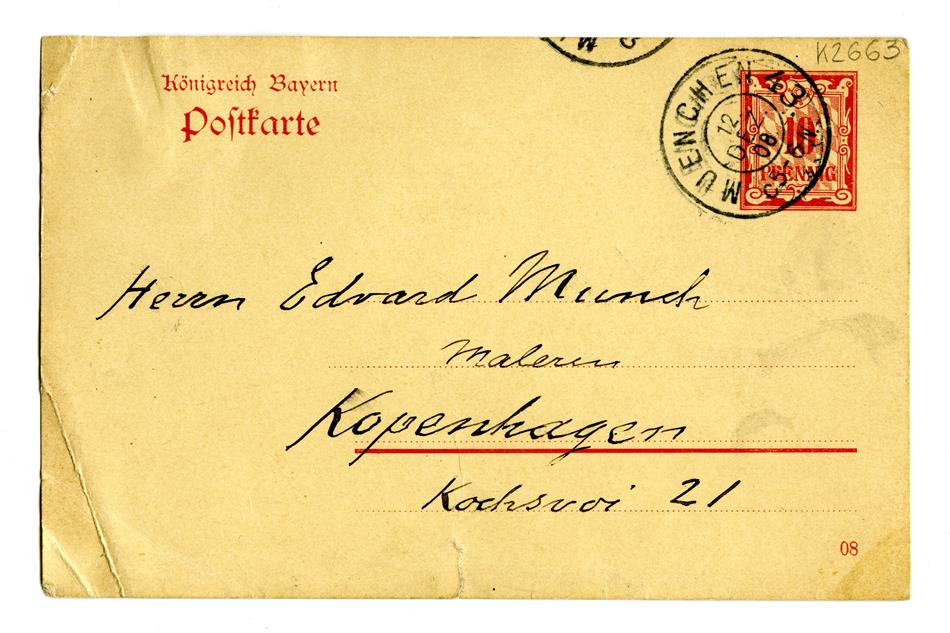 K2663
Königreich Bayern
Postkarte
MUENCHEN 43.
12
DEZ.
08
5-6 N.
10
PFENNIG
Herrn Edvard Munch
Maleren
Kopenhagen
Kochsvei 21
08